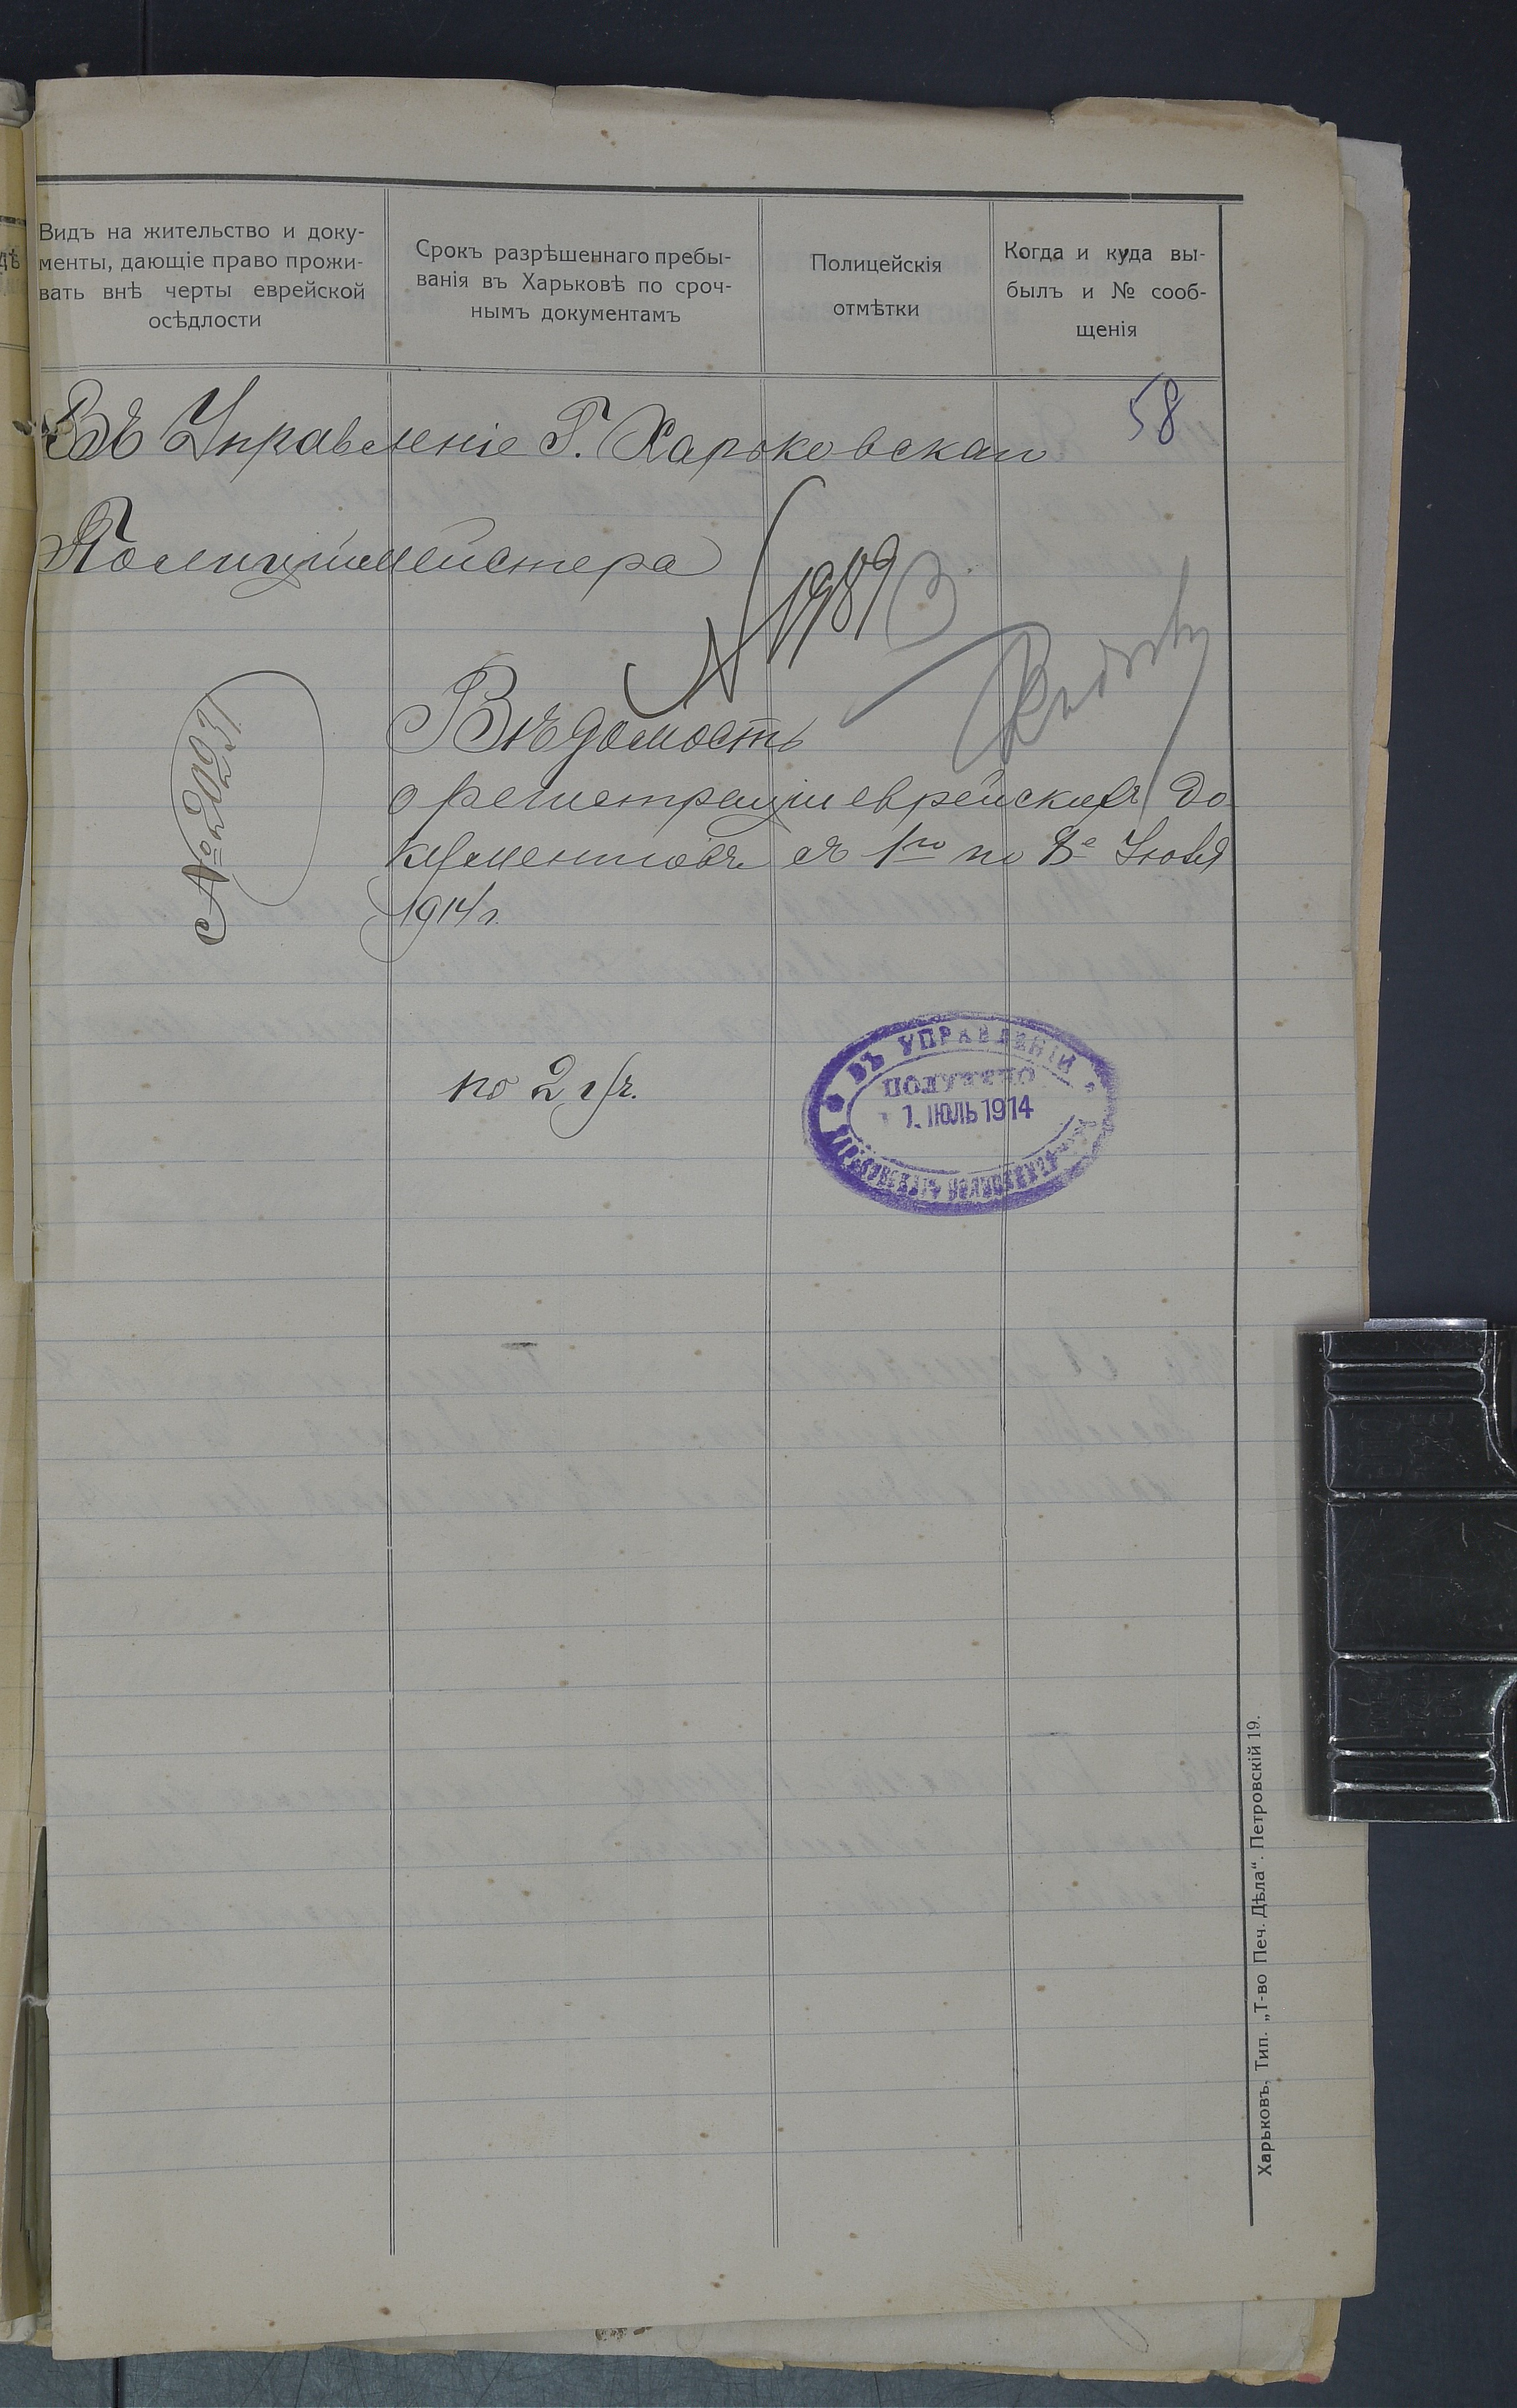 Видъ на жительство и доку-
менты, дающіе право прожи-
вать внѣ черты еврейской
осѣдлости
Срокъ разрѣшеннаго пребы-
ванія въ Харьковѣ по сроч-
нымъ документамъ
Полицейскія
отмѣтки
Когда и куда вы-
былъ и № сооб-
щенія
58
Въ Управленіе Г. Харьковскаго
Полиціймейстера
N 1989
Вѣдомость
о регистраціи еврейскихъ до
кументовъ съ 1го по
1914 г.
№ 20031
по 2 уч.
ВЪ УПРАВЛЕНІИ
ПОЛУЧЕНО
1. ІЮЛЬ 1914
Харьковъ. Тип. „Т-во Печ. Дѣла“. Петровскій 19.